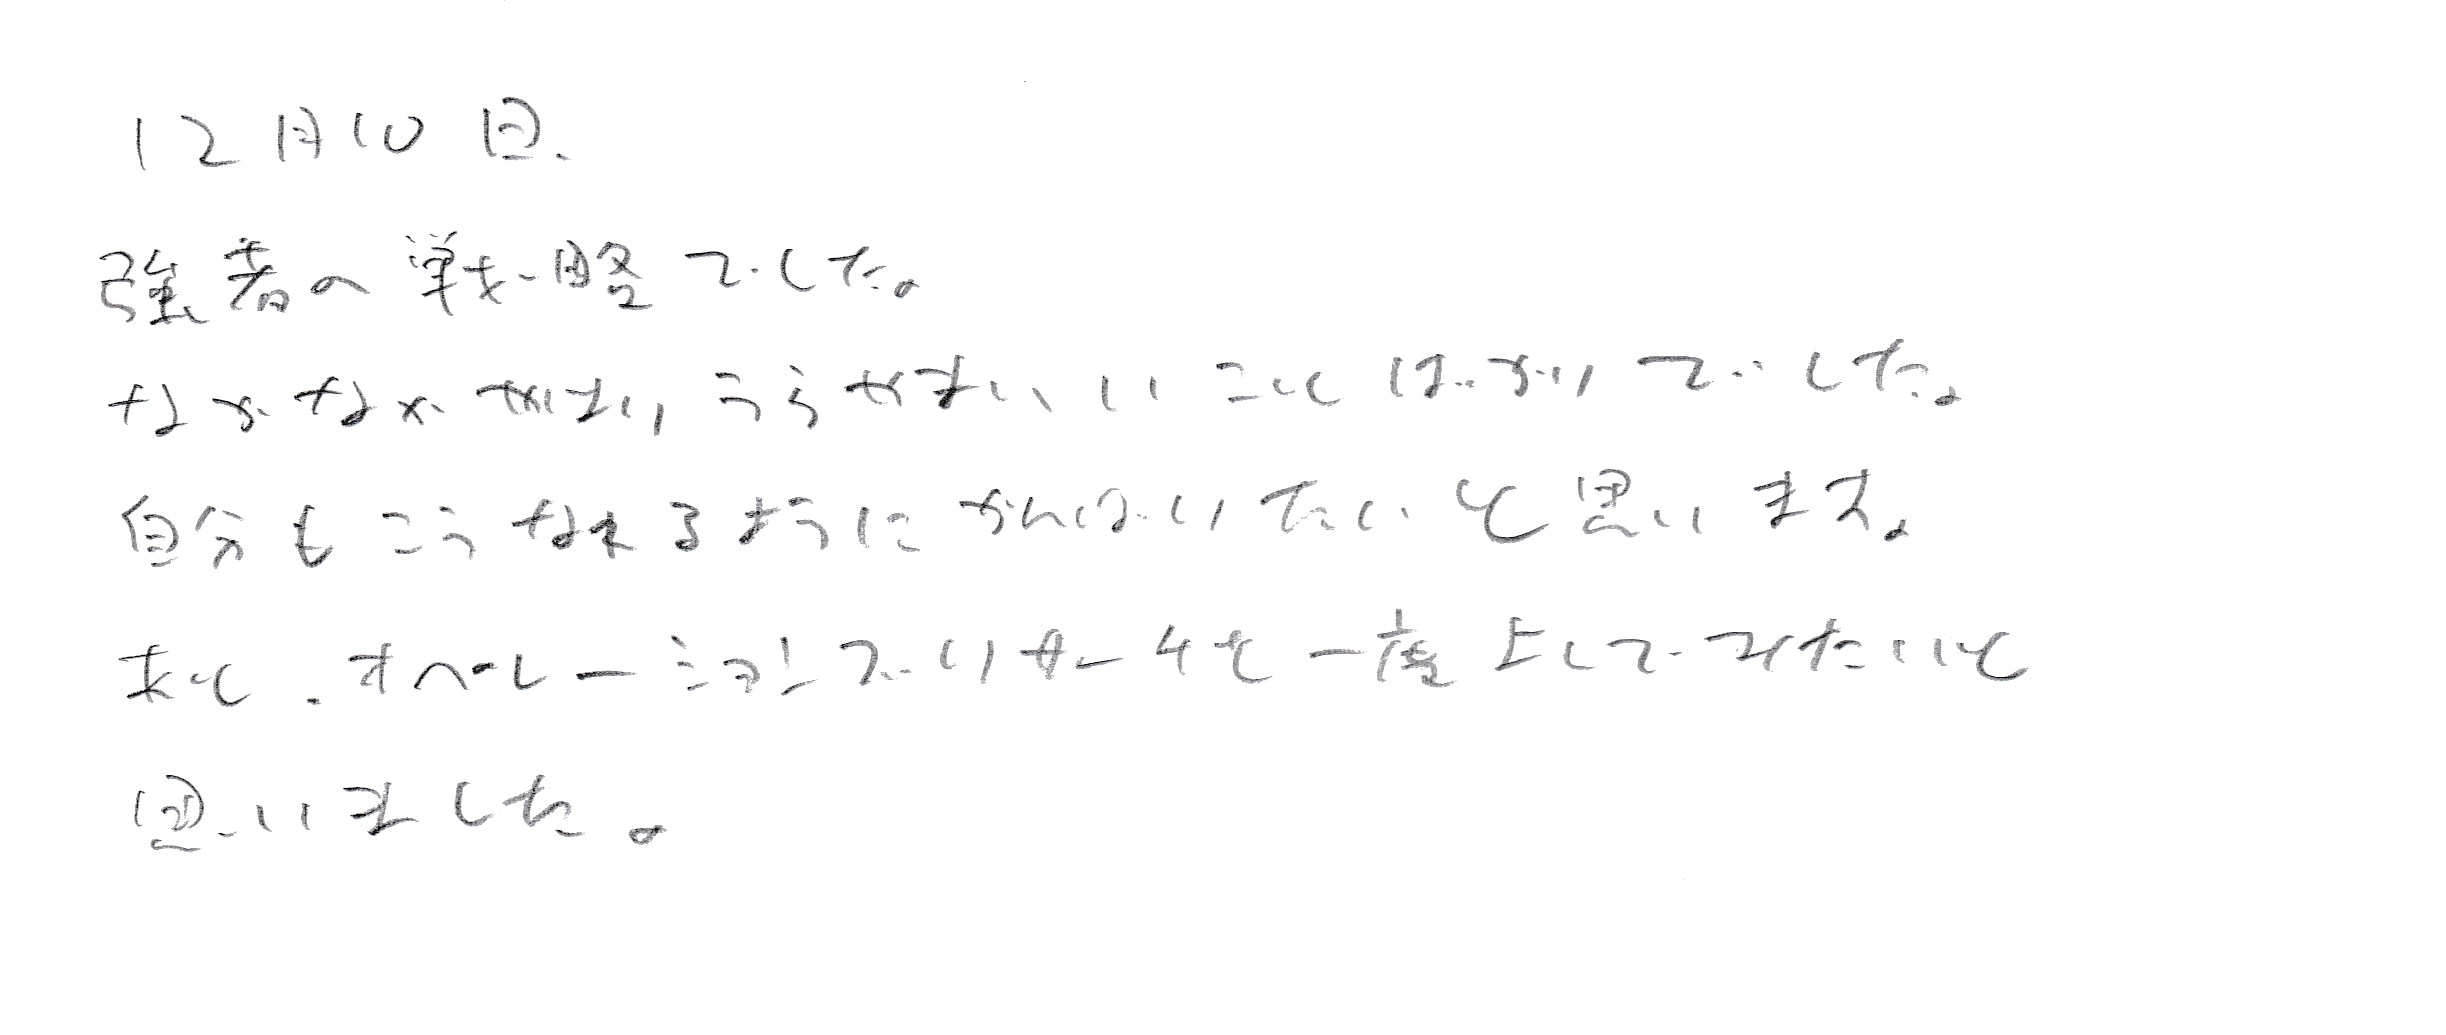 12月10日.
強者の戦略でした。
なかなかがまい、うらやましいことばかりでした。
自分もこうなれるようにがんばりたいと思います。
あと、オペレーションズリサーチを一度よしてみたいと
思いました。